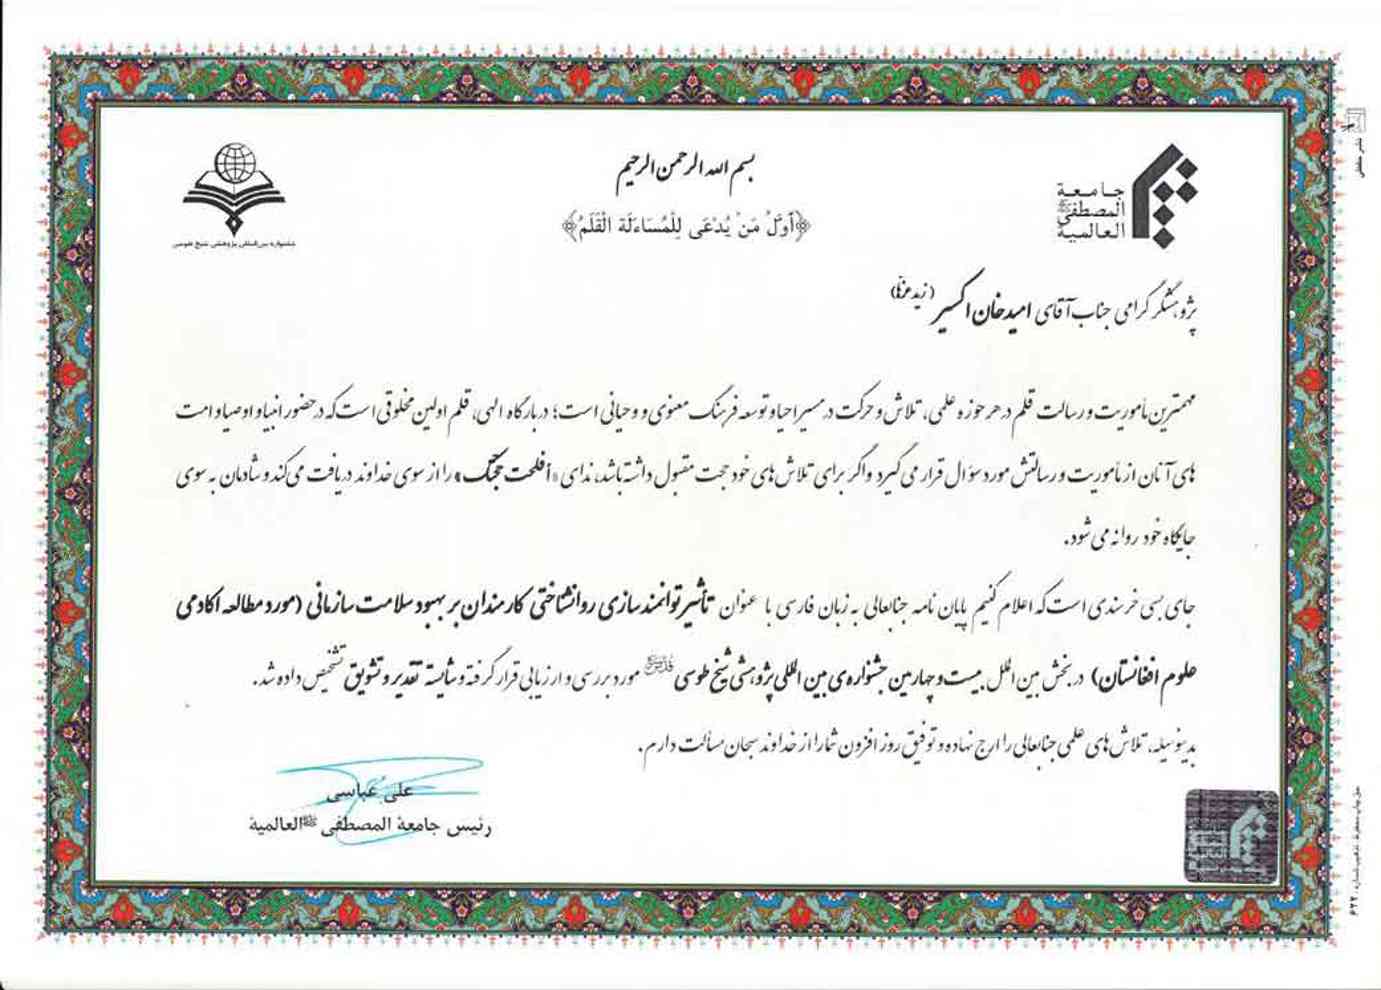 بسم الله الرحمن الرحیم
﴿أَوَّلُ مَنْ يُدْعَى لِلْمُسَاءَلَة الْقَلَمُ﴾
جامعة
المصطفی ﷺ
العالمیة
جشنواره بین‌المللی پژوهشی شیخ طوسی
پژوهشگر گرامی جناب آقای امیدخان اکسیر (زید عزّه)
مهمترین مأموریت و رسالت قلم در هر حوزه علمی، تلاش و حرکت در مسیر احیا و توسعه فرهنگ معنوی و وحیانی است؛ در بارگاه الهی، قلم اولین مخلوقی است که در حضور انبیا و اوصیا و امت
های آنان از مأموریت و رسالتش مورد سؤال قرار می گیرد و اگر برای تلاش های خود حجت مقبول داشته باشد، ندای «أفلحت حجتک» را از سوی خداوند دریافت می کند و شادمان به سوی
جایگاه خود روانه می شود.
جای بسی خرسندی است که اعلام کنیم پایان نامه جنابعالی به زبان فارسی با عنوان تأثیر توانمندسازی روانشناختی کارمندان بر بهبود سلامت سازمانی (مورد مطالعه اکادمی
علوم افغانستان) در بخش بین الملل بیست و چهارمین جشنواره‌ی بین المللی پژوهشی شیخ طوسی مورد بررسی و ارزیابی قرار گرفته و شایسته تقدیر و تشویق تشخیص داده شد.
بدینوسیله، تلاش های علمی جنابعالی را ارج نهاده و توفیق روز افزون شما را از خداوند سبحان مسألت دارم.
علی عباسی
رئیس جامعة المصطفی ﷺ العالمیة